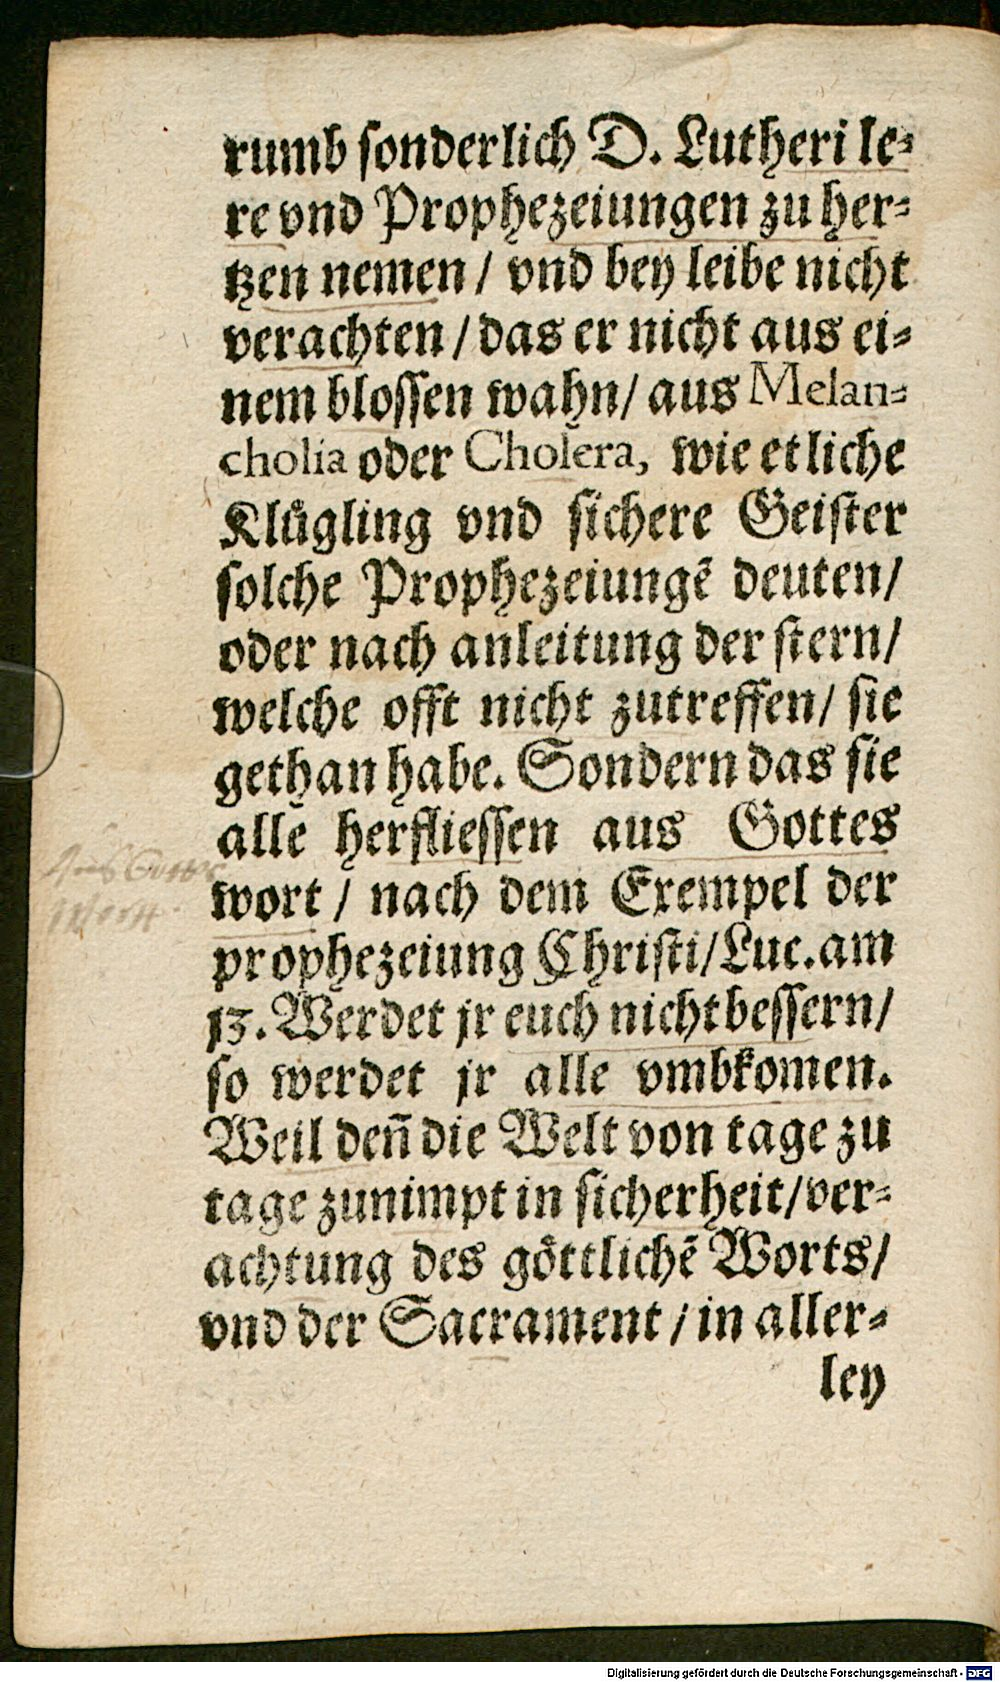 rumb ſonderlich D. Lutheri le⸗
re vnd Prophezeiungen zu her⸗
tzen nemen / vnd bey leibe nicht
verachten / das er nicht aus ei⸗
nem bloſſen wahn / aus Melan⸗
cholia oder Cholera, wie etliche
Klůgling vnd ſichere Geiſter
ſolche Prophezeiungẽ deuten /
oder nach anleitung der ſtern /
welche offt nicht zutreffen / ſie
gethan habe. Sondern das ſie
alle herflieſſen aus Gottes
wort / nach dem Exempel der
prophezeiung Chriſti / Luc. am
13. Werdet jr euch nicht beſſern /
ſo werdet jr alle vmbkomen.
Weil deñ die Welt von tage zu
tage zunimpt in ſicherheit / ver⸗
achtung des goͤttlichẽ Worts /
vnd der Sacrament / in aller⸗
ley
Digitalisierung gefördert durch die Deutsche Forschungsgemeinschaft - DFG